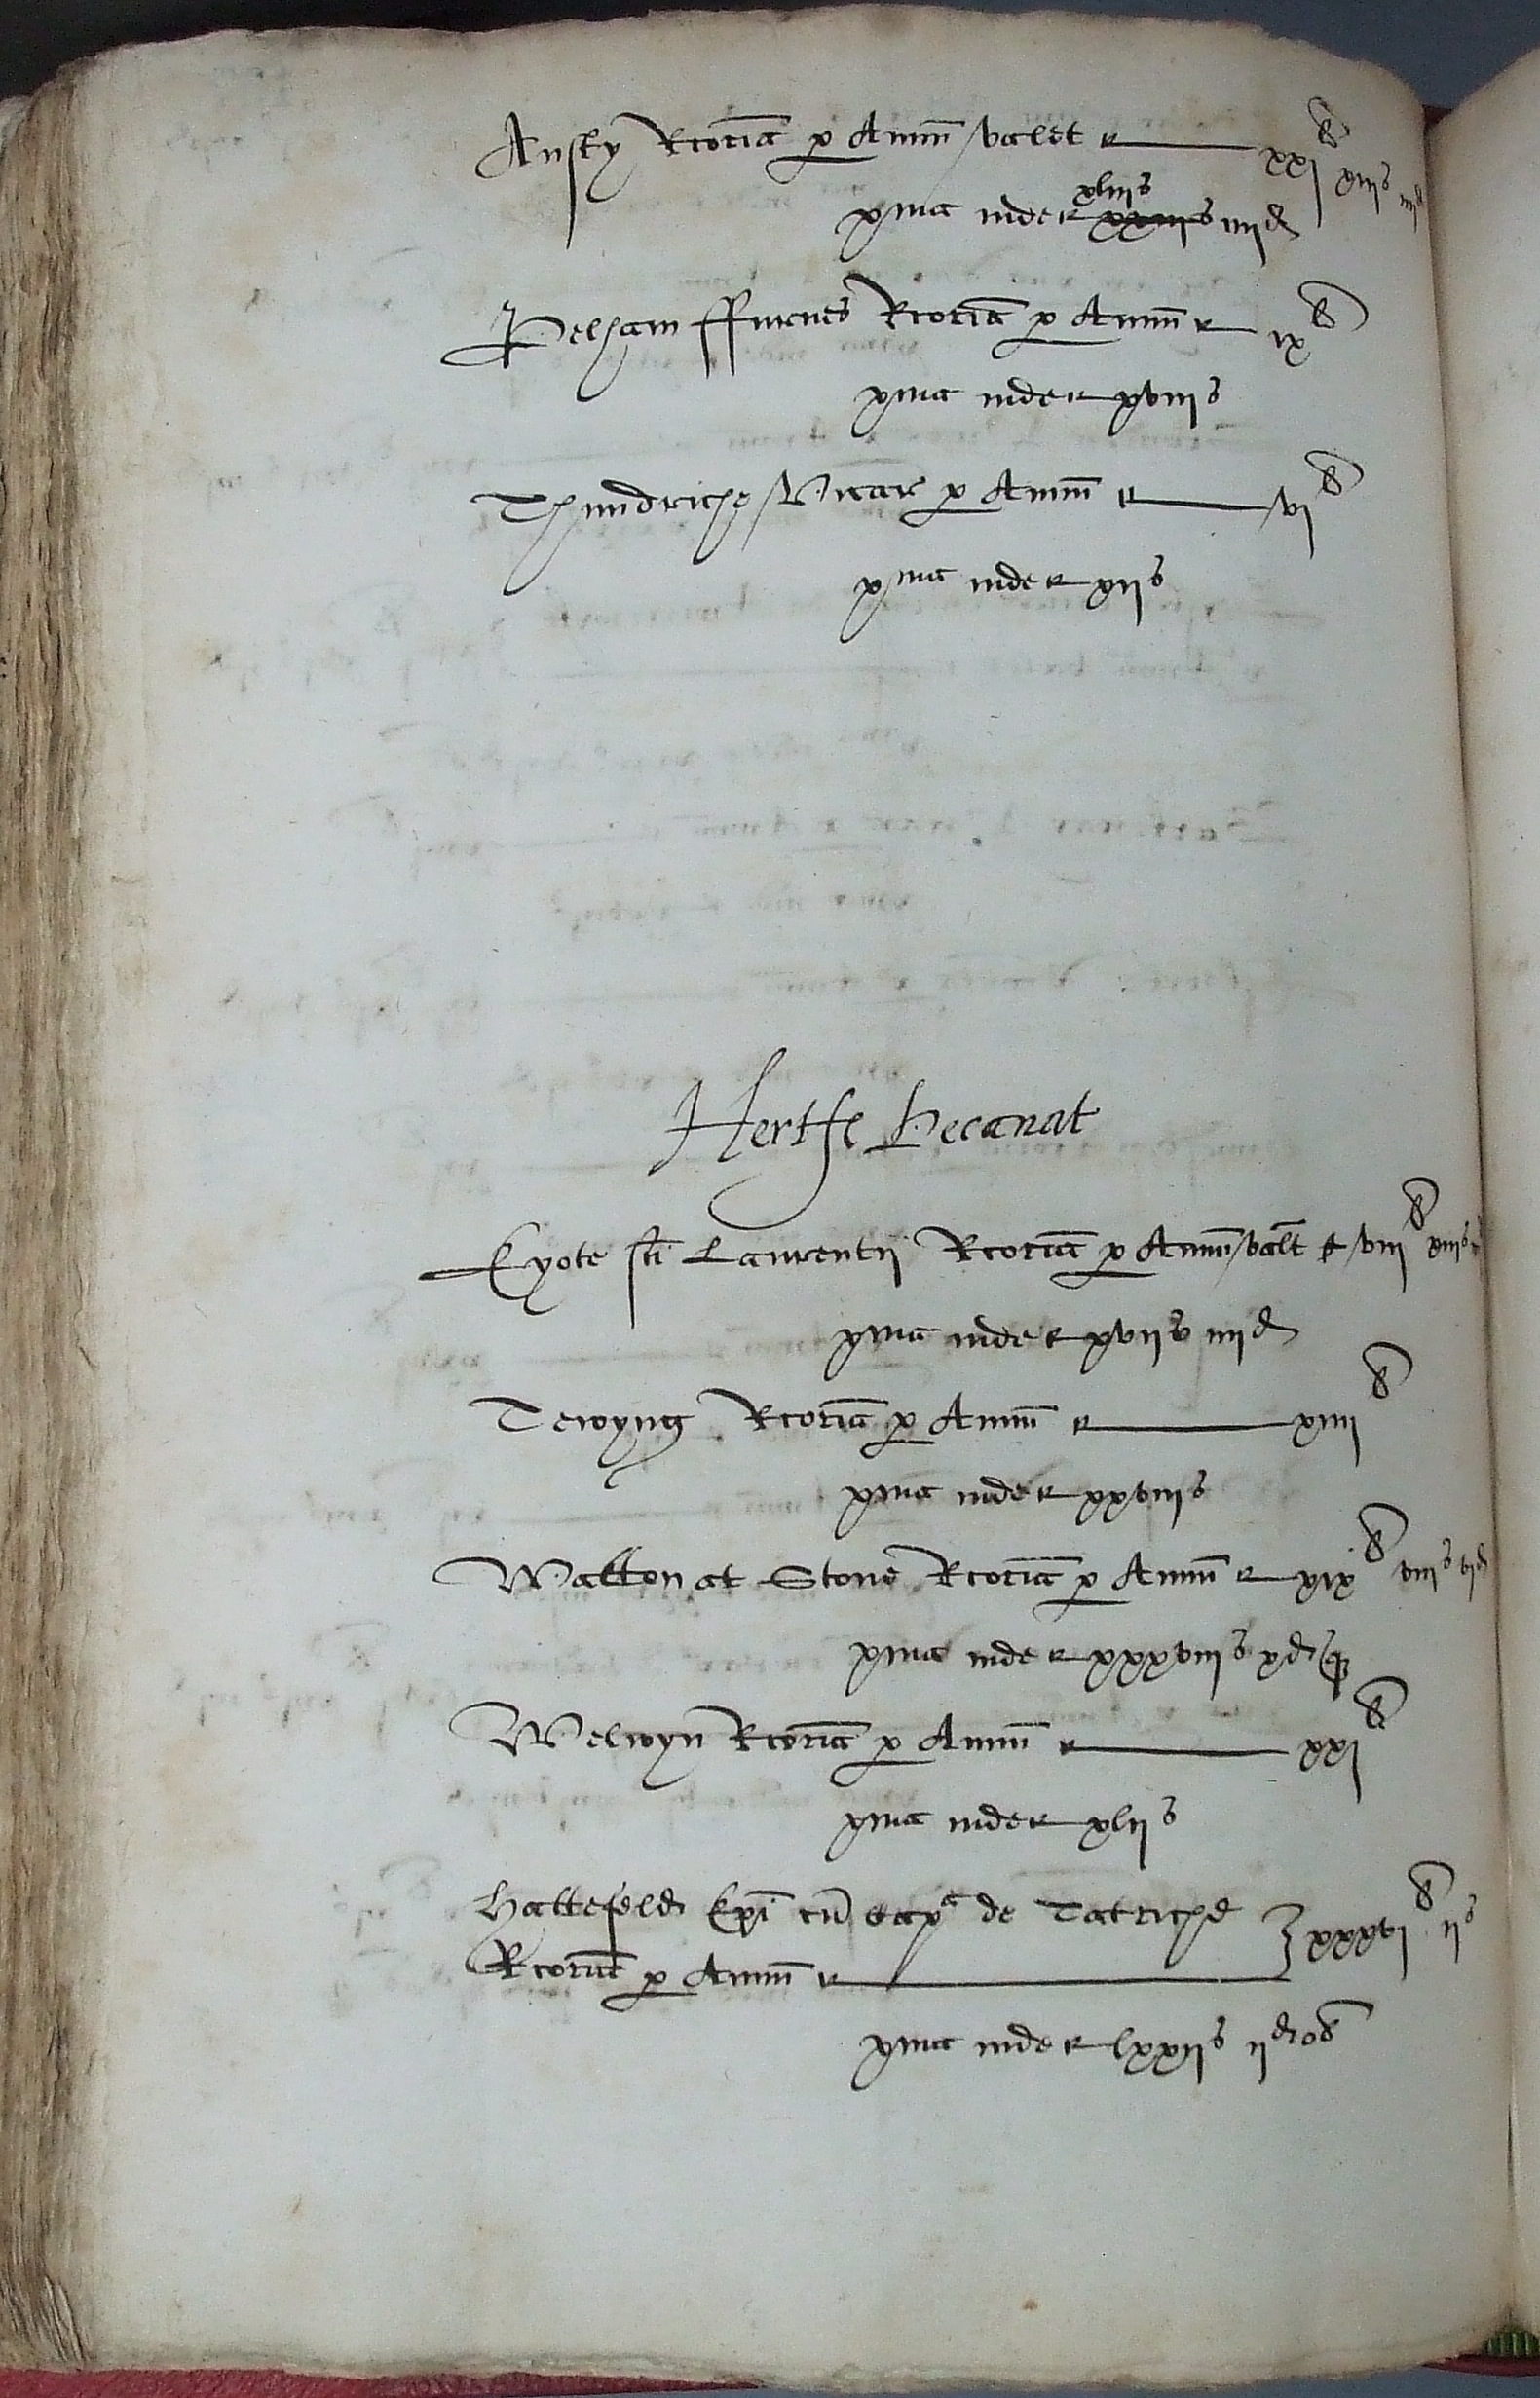 Ansty Rcoria p Annu valet xxj li xiijs iiijd
xma inde xliijs xxiiijs iiijd
Pelham ffurnes Rcoria p Annu ix li
xma inde xviijs
Thundriche Vicar p Annu vj li
xma inde xijs
Hertfe Decanat
Eyote sti Laurentij Rcoria p Annu valt viij li xiijs
xma inde xvijs iiijd
Tewyng Rcoria p Annu xiiij li
xma inde xxviijs
Watton at Stone Rcoria p Annu xix li viijs vijd
xma inde xxxviijs xd q
Welwyn Rcoria p Annu xxj li
xma inde xlijs
Hattefeld Epi cu capa de Tatriche
Rcoria p Annu xxxvj li ijs
xma inde lxxijs ijd ob